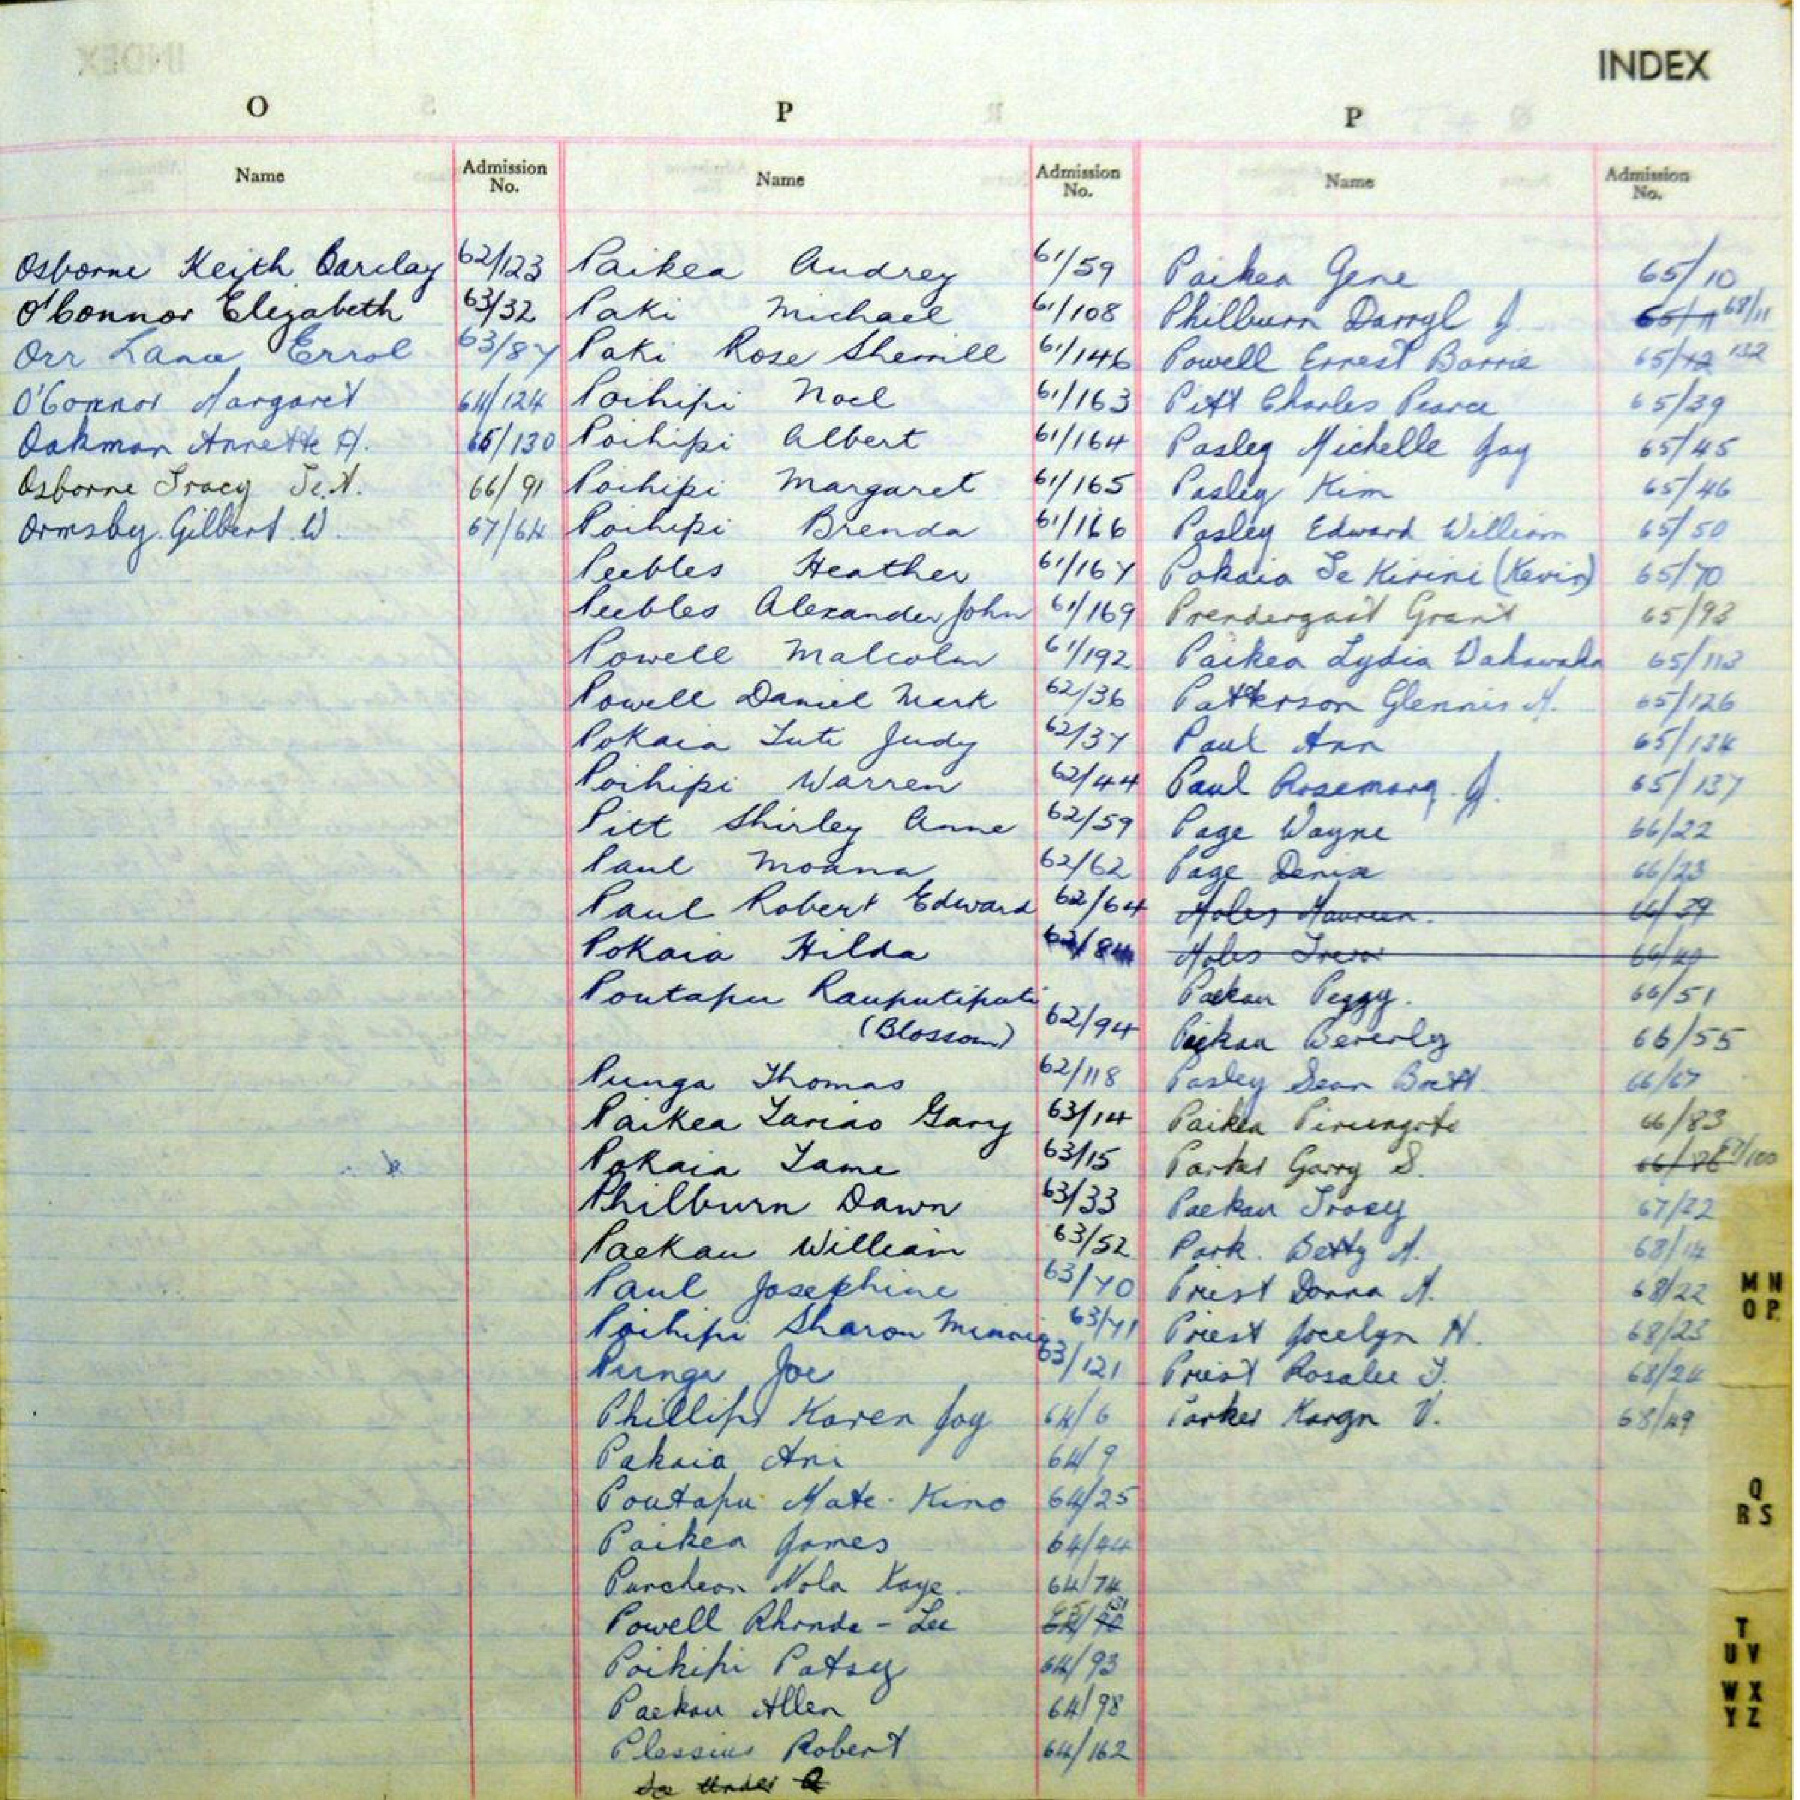 INDEX
O
Name Admission No.
Osborne Keith Barclay 62/123
O'Connor Elizabeth 63/32
Orr Lance Errol 63/87
O'Connor Margaret 64/124
Oakman Annette M. 65/130
Osborne Tracy Te.A. 66/91
Ormsby Gilbert W. 67/64
P
Name Admission No.
Paikea Audrey 61/59
Paki Michael 61/108
Paki Rose Sherrill 61/146
Poihipi Noel 61/163
Poihipi Albert 61/164
Poihipi Margaret 61/165
Poihipi Brenda 61/166
Peebles Heather 61/167
Peebles Alexander John 61/169
Powell Malcolm 61/192
Powell Daniel Mark 62/36
Pokaia Tuti Judy 62/37
Poihipi Warren 62/44
Pitt Shirley Anne 62/59
Paul Moana 62/62
Paul Robert Edward 62/64
Pokaia Hilda
Poutapu Rauputiputi
(Blossom) 62/94
Punga Thomas 62/118
Paikea Tariao Gary 63/14
Pokaia Tame 63/15
Philburn Dawn 63/33
Paekau William 63/52
Paul Josephine 63/70
Poihipi Sharon Minnie 63/71
Punga Joe 63/121
Phillips Karen Joy 64/6
Pakaia Ani 64/9
Poutapu Mate Kino 64/25
Paikea James 64/44
Puncheon Nola Kaye 64/74
Powell Rhonda - Lee
Poihipi Patsy 64/93
Paekau Allen 64/98
Plessius Robert 64/162
See Under Q
P
Name Admission No.
Paikea Gene 65/10
Philburn Darryl J. 65/11 68/11
Powell Ernest Barrie 65/12 132
Pitt Charles Pearce 65/39
Pasley Michelle Joy 65/45
Pasley Kim 65/46
Pasley Edward William 65/50
Pokaia Te Kirini (Kevin) 65/70
Prendergast Grant 65/93
Paikea Lydia 65/113
Patterson Glennis M. 65/126
Paul Ann 65/134
Paul Rosemary J. 65/137
Page Wayne 66/22
Page Denis 66/23
Moles Maureen. 66/39
Moles Trevor 66/40
Paekau Peggy. 66/51
Paekau Beverly 66/55
Pasley Sean Brett 66/67
Paikea 66/83
Parker Garry S. 66/86 67/100
Paekau Tracy 67/22
Park. Betty M. 68/14
Priest Donna M. 68/22
Priest Jocelyn H. 68/23
Priest Rosalee T. 68/24
Parker Karyn V. 68/49
M N
O P
Q
R S
T
U V
W X
Y Z